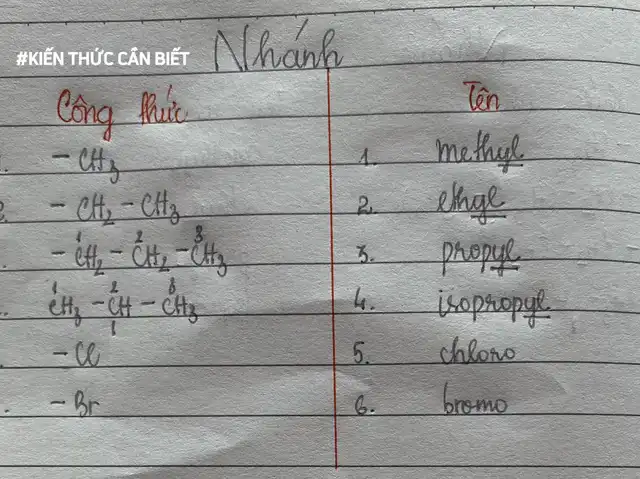 #KIẾN THỨC CẦN BIẾT
Nhánh
Công thức Tên
- CH₃ 1. methyl
2. - CH₂ - CH₃ 2. ethyl
1 2 3
- CH₂ - CH₂ - CH₃ 3. propyl
1 2 3
CH₃ - CH - CH₃ 4. isopropyl
- Cl 5. chloro
- Br 6. bromo